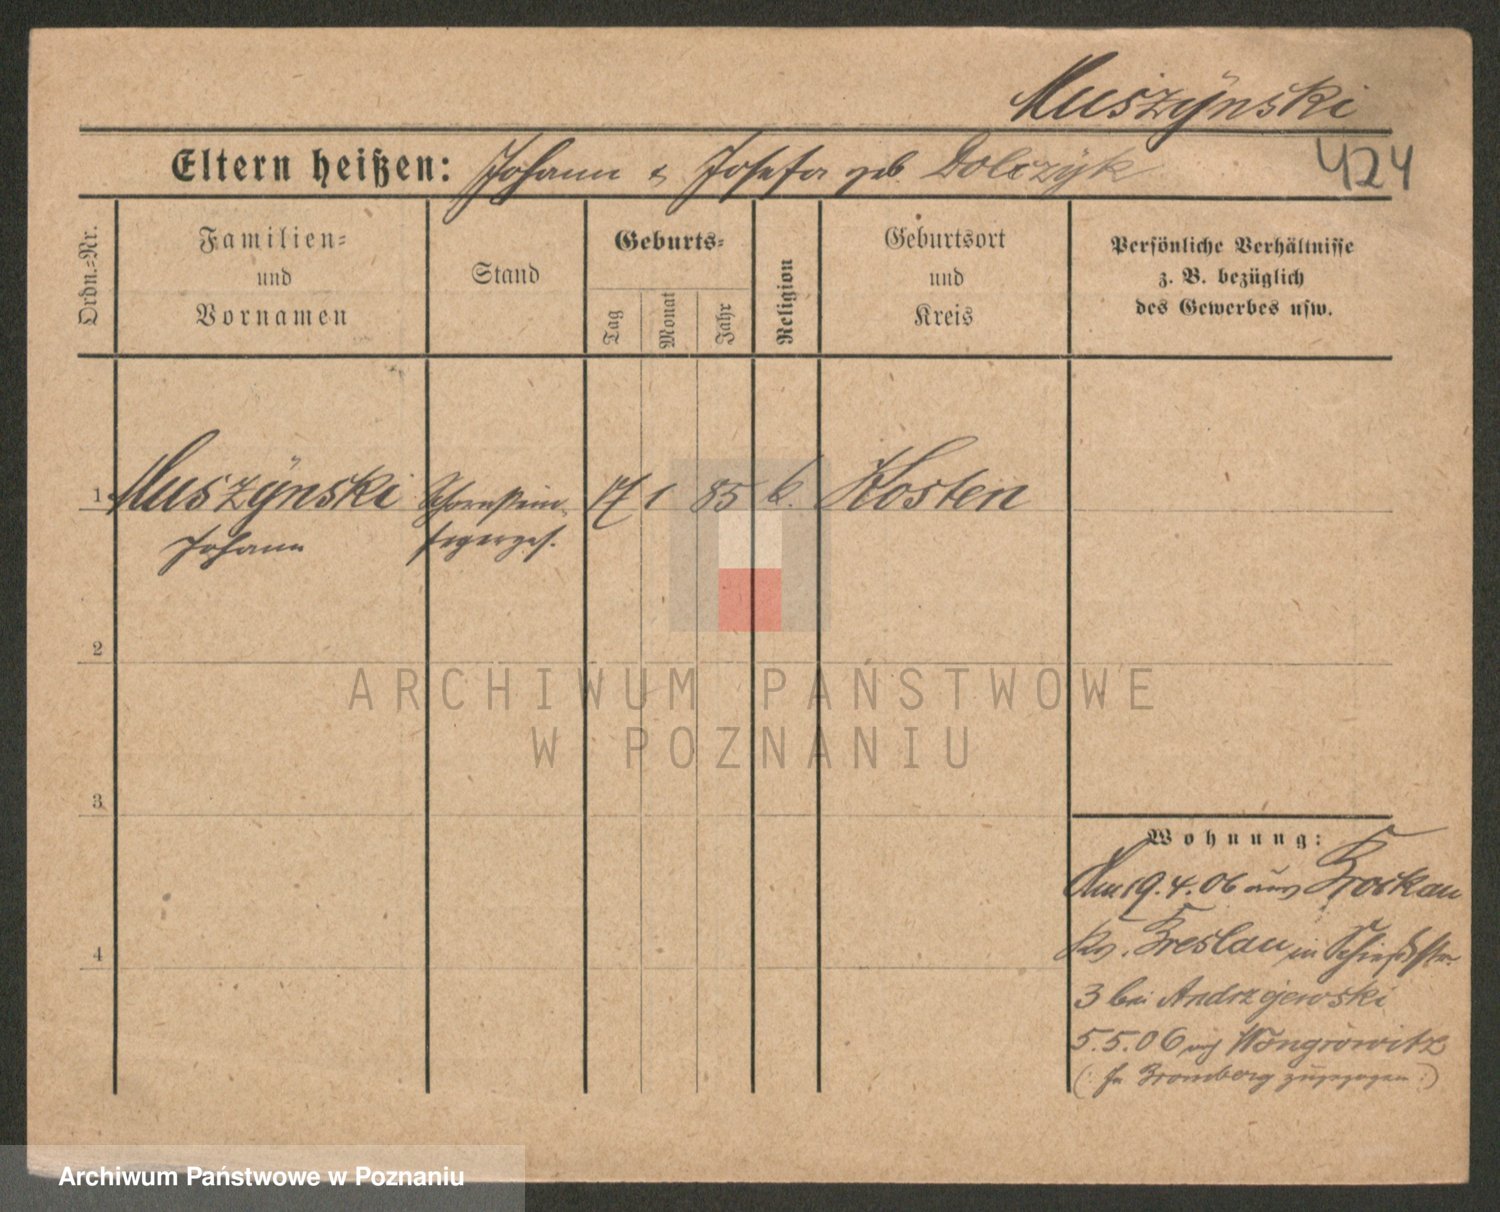 Muszÿnski
Eltern heißen: Johann & Josefa geb. Dolczÿk
424
Ordn.=Nr.
Familien=
und
Vornamen
Stand
Geburts=
Tag
Monat
Jahr
Religion
Geburtsort
und
Kreis
Persönliche Verhältnisse
z. B. bezüglich
des Gewerbes usw.
1 Muszÿnski Schornstein- 17 1 85 k. Kosten
Johann fegerges.
2
ARCHIWUM PAŃSTWOWE
W POZNANIU
3
Wohnung:
Am 19.4.06 aus
Kr. Breslau in
4
3 bei Andrzejewski
5.5.06 nach Wongrowitz
Bromberg zugezogen
Archiwum Państwowe w Poznaniu